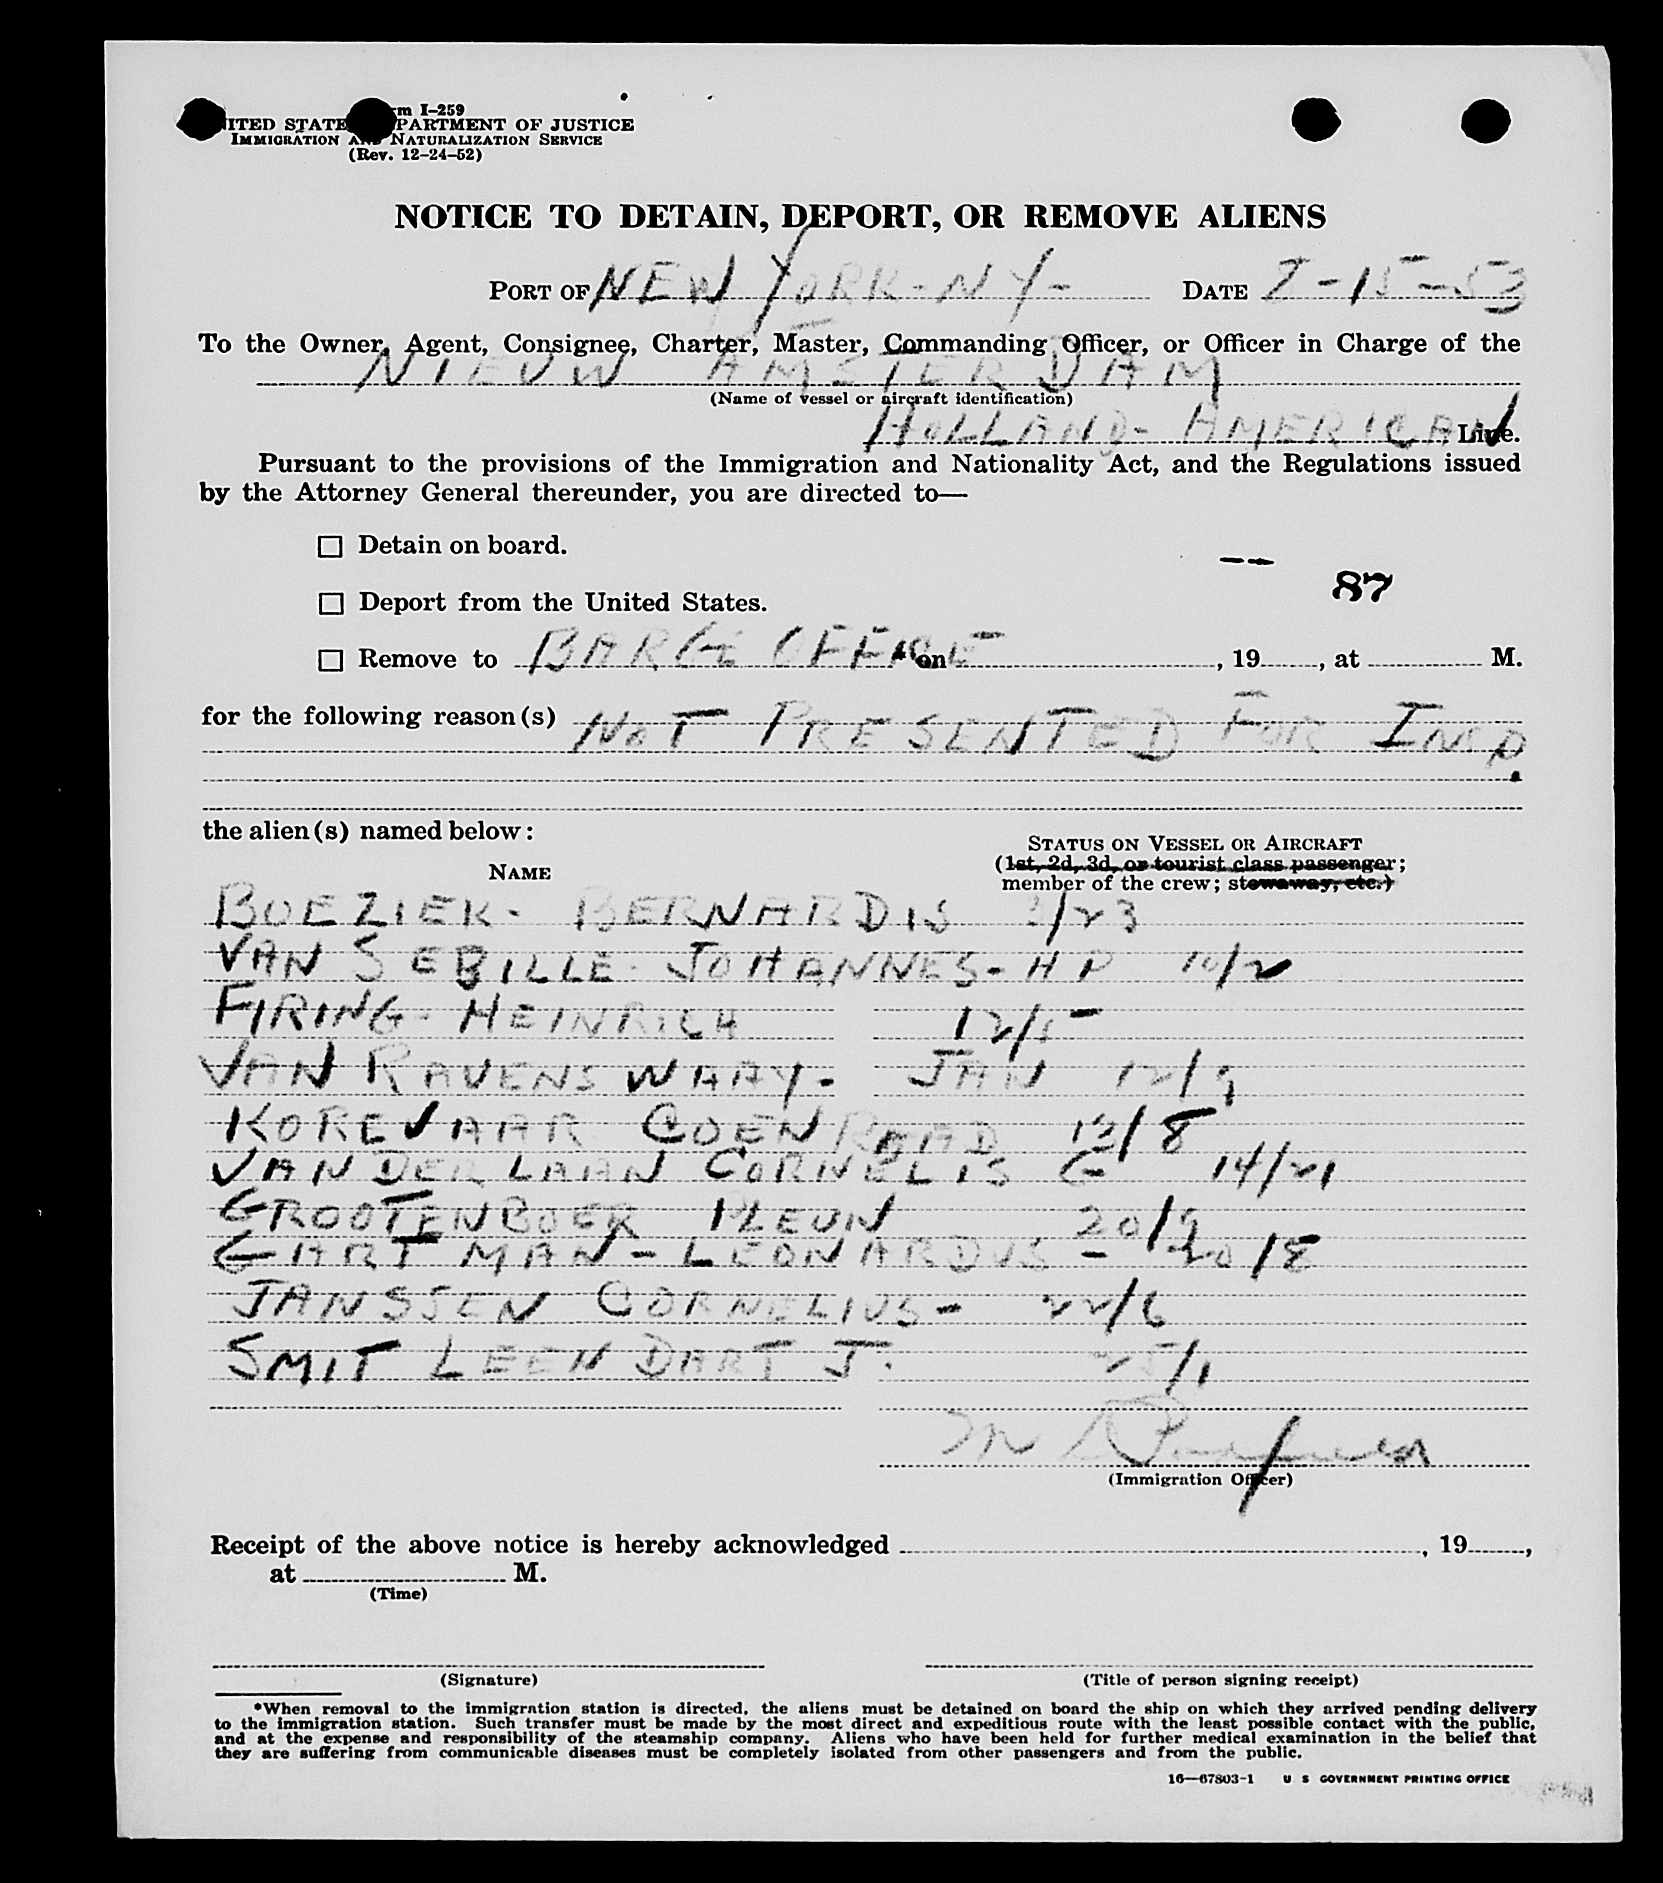 Form I-259
UNITED STATES DEPARTMENT OF JUSTICE
IMMIGRATION AND NATURALIZATION SERVICE
(Rev. 12-24-52)
NOTICE TO DETAIN, DEPORT, OR REMOVE ALIENS
PORT OF NEW YORK - NY - DATE 8-15-53
To the Owner, Agent, Consignee, Charter, Master, Commanding Officer, or Officer in Charge of the
NIEUW AMSTERDAM
(Name of vessel or aircraft identification)
HOLLAND-AMERICAN Line.
Pursuant to the provisions of the Immigration and Nationality Act, and the Regulations issued
by the Attorney General thereunder, you are directed to—
☐ Detain on board.
87
☐ Deport from the United States.
☐ Remove to BARGE OFFICE *on , 19 , at M.
for the following reason(s) NOT PRESENTED FOR INSP.
the alien(s) named below:
STATUS ON VESSEL OR AIRCRAFT
NAME (1st, 2d, 3d, or tourist class passenger;
member of the crew; stowaway, etc.)
BOEZIEK - BERNARDIS 3/23
VAN SEBILLE - JOHANNES - H P 10/2
FIRING - HEINRICH 12/5
VAN RAVENSWAAY - JAN 12/9
KOREVAAR COENRAAD 13/8
VAN DER LAAN CORNELIS G 14/21
GROOTENBOER PLEUN 20/9
GARTMAN - LEONARDUS - 20/8
JANSSEN CORNELIUS - 22/6
SMIT LEENDART J. 25/1
(Immigration Officer)
Receipt of the above notice is hereby acknowledged , 19 ,
at M.
(Time)
(Signature) (Title of person signing receipt)
*When removal to the immigration station is directed, the aliens must be detained on board the ship on which they arrived pending delivery
to the immigration station. Such transfer must be made by the most direct and expeditious route with the least possible contact with the public,
and at the expense and responsibility of the steamship company. Aliens who have been held for further medical examination in the belief that
they are suffering from communicable diseases must be completely isolated from other passengers and from the public.
16—67803-1 U S GOVERNMENT PRINTING OFFICE